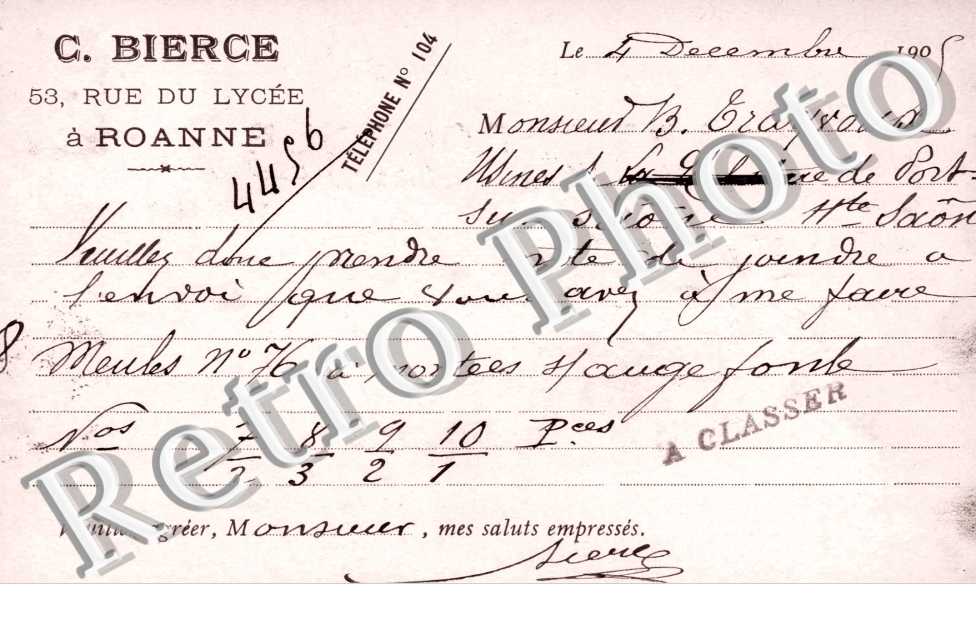 C. BIERCE
53, RUE DU LYCÉE
à ROANNE
TÉLÉPHONE N° 104
4456
Le 4 Decembre 1905
Monsieur B.
Usines de Port-
sur Saône Hte Saôn
Veuillez donc prendre note de joindre a
l'envoi que vous avez à me faire
8
Meules n° 76 à portées st auge fonte
Nos 7 8 9 10 Pces
3 3 2 1
A CLASSER
Veuillez agréer, Monsieur, mes saluts empressés.
Bierce
Retro Photo